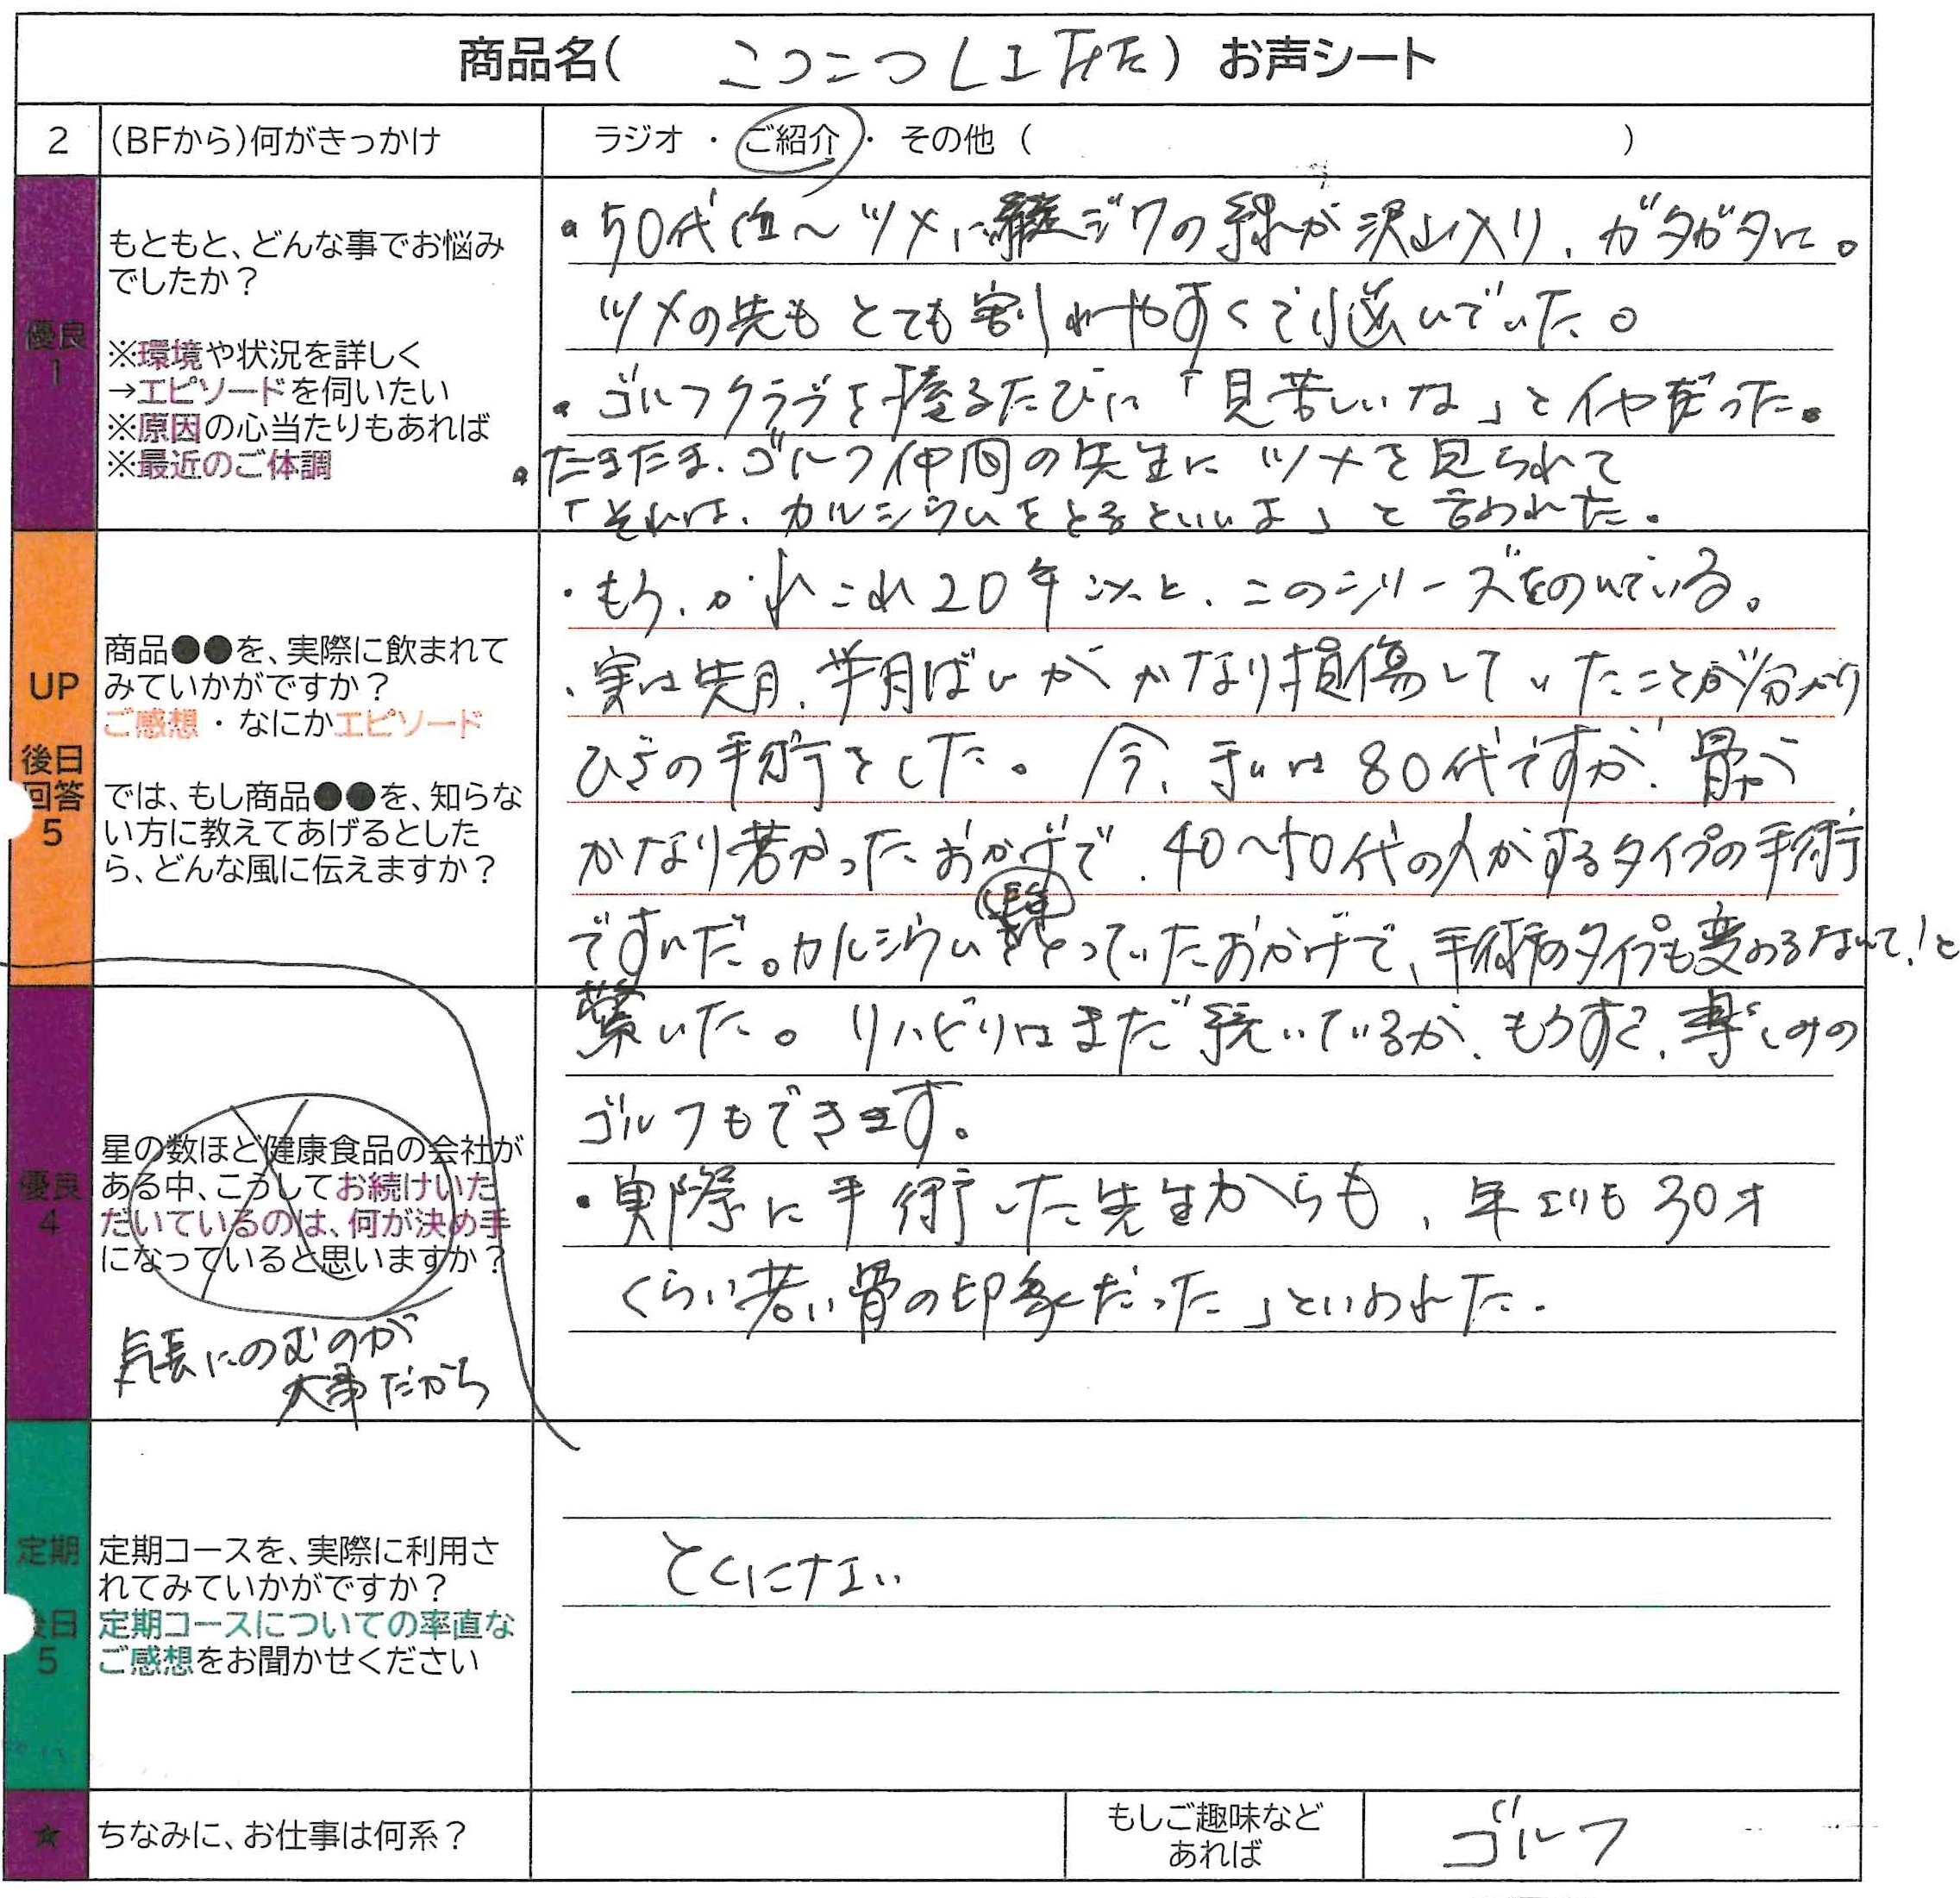 商品名( こつこつ ) お声シート
2 (BFから)何がきっかけ ラジオ ・ ご紹介 ・ その他 ( )
優良
1
もともと、どんな事でお悩み
でしたか？
※環境や状況を詳しく
→エピソードを伺いたい
※原因の心当たりもあれば
※最近のご体調
・50代位〜ツメに縦ジワの線が沢山入り、ガタガタに。
ツメの先もとても割れやすくて悩いでいた。
・ゴルフクラブを握るたびに「見苦しいな」とイヤだった。
・たまたま、ゴルフ仲間の先生にツメを見られて
「それは、カルシウムをとるといいよ」と言われた。
UP
後日
回答
5
商品●●を、実際に飲まれて
みていかがですか？
ご感想・なにかエピソード
では、もし商品●●を、知らな
い方に教えてあげるとした
ら、どんな風に伝えますか？
・もう、かれこれ20年以上、このシリーズをのんでいる。
・実は先月、半月ばんがかなり損傷していたことが分かり
ひざの手術をした。今、私は80代ですが、骨が
かなり若かったおかげで、40〜50代の人がするタイプの手術
ですんだ。カルシウムをとっていたおかげで、手術のタイプも変わるなんて！と
驚いた。リハビリはまだ続いているが、もうすぐ、楽しみの
ゴルフもできます。
・実際に手術した先生からも、年よりも30才
くらい若い骨の印象だった」といわれた。
優良
4
星の数ほど健康食品の会社が
ある中、こうしてお続けいた
だいているのは、何が決め手
になっていると思いますか？
気長にのむのが
大事だから
定期
後日
5
定期コースを、実際に利用さ
れてみていかがですか？
定期コースについての率直な
ご感想をお聞かせください
とくにナエい
★ ちなみに、お仕事は何系？
もしご趣味など
あれば
ゴルフ